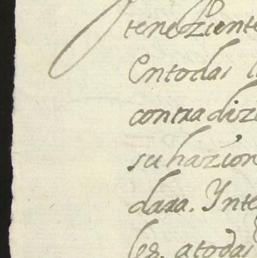 tenezient
En todas l
contradize
su hazion
dara. Inte
les. a todas